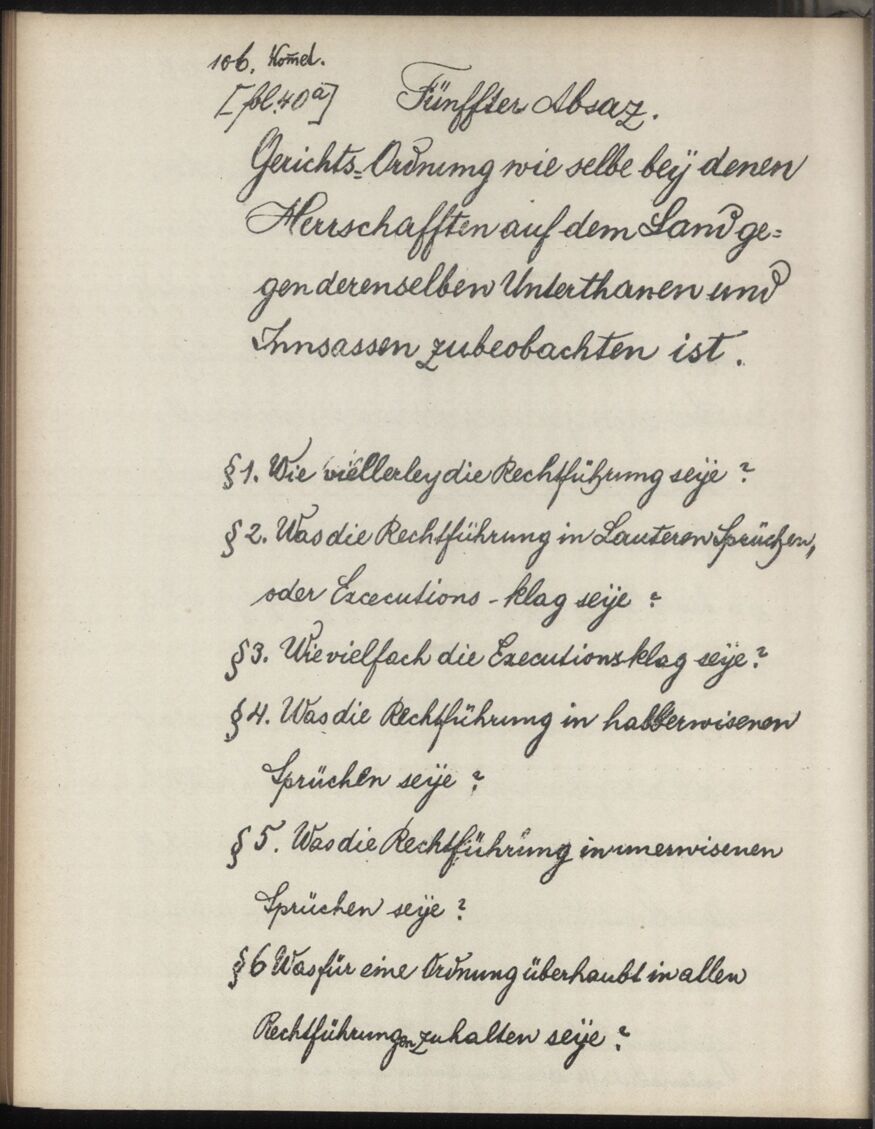 106. Komd.
[fol. 40a] Fünffter Absaz.
Gerichts=Ordnung wie selbe beÿ denen
Herrschafften auf dem Land ge=
gen derenselben Unterthanen und
Innsassen zubeobachten ist.
§ 1. Wie viellerley die Rechtführung seÿe?
§ 2. Was die Rechtführung in Lauteren Sprüchen,
oder Excecutions-klag seÿe?
§ 3. Wie vielfach die Executionsklag seÿe?
§ 4. Was die Rechtführung in halberwisenen
Sprüchen seÿe?
§ 5. Was die Rechtführung in unerwisenen
Sprüchen seÿe?
§ 6 Was für eine Ordnung überhaubt in allen
Rechtführungen zu halten seÿe?